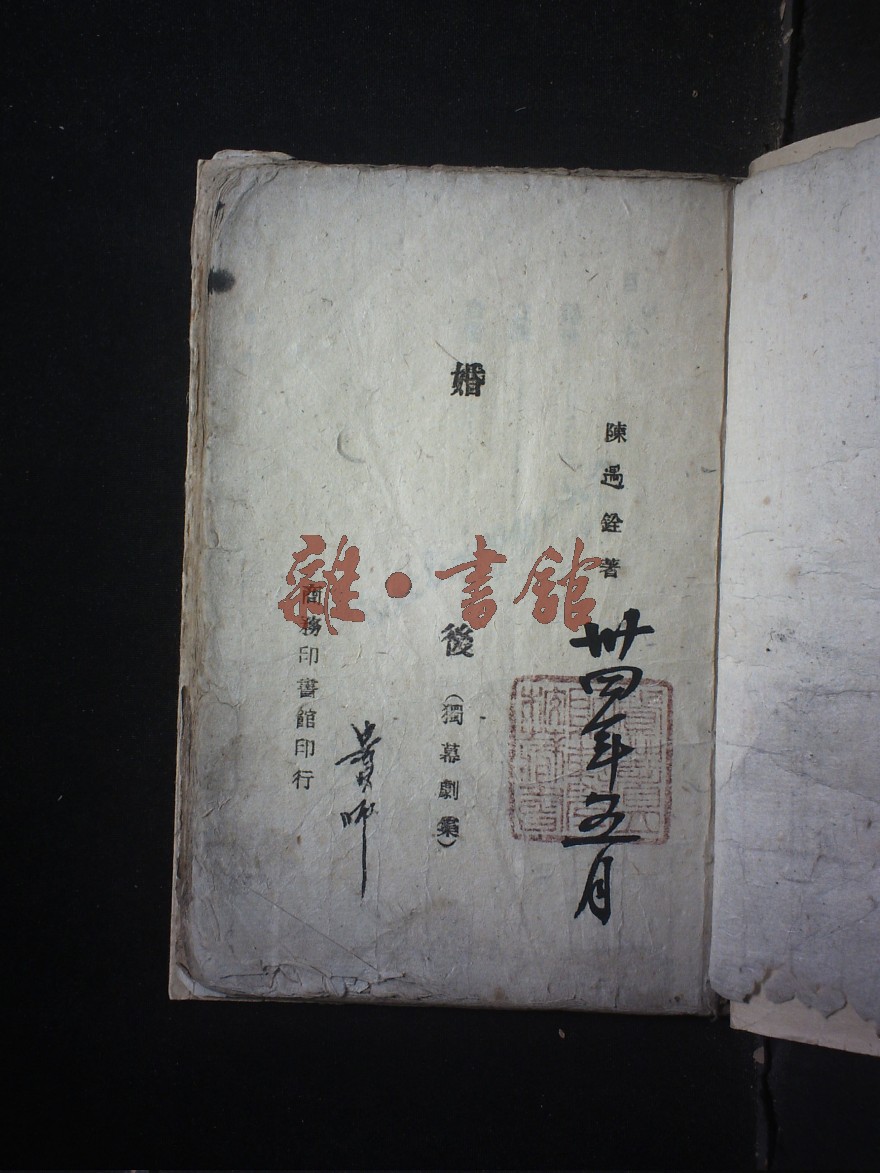 陳過銓著
婚後(獨幕劇集)
商務印書館印行
卅四年五月
雜·書館